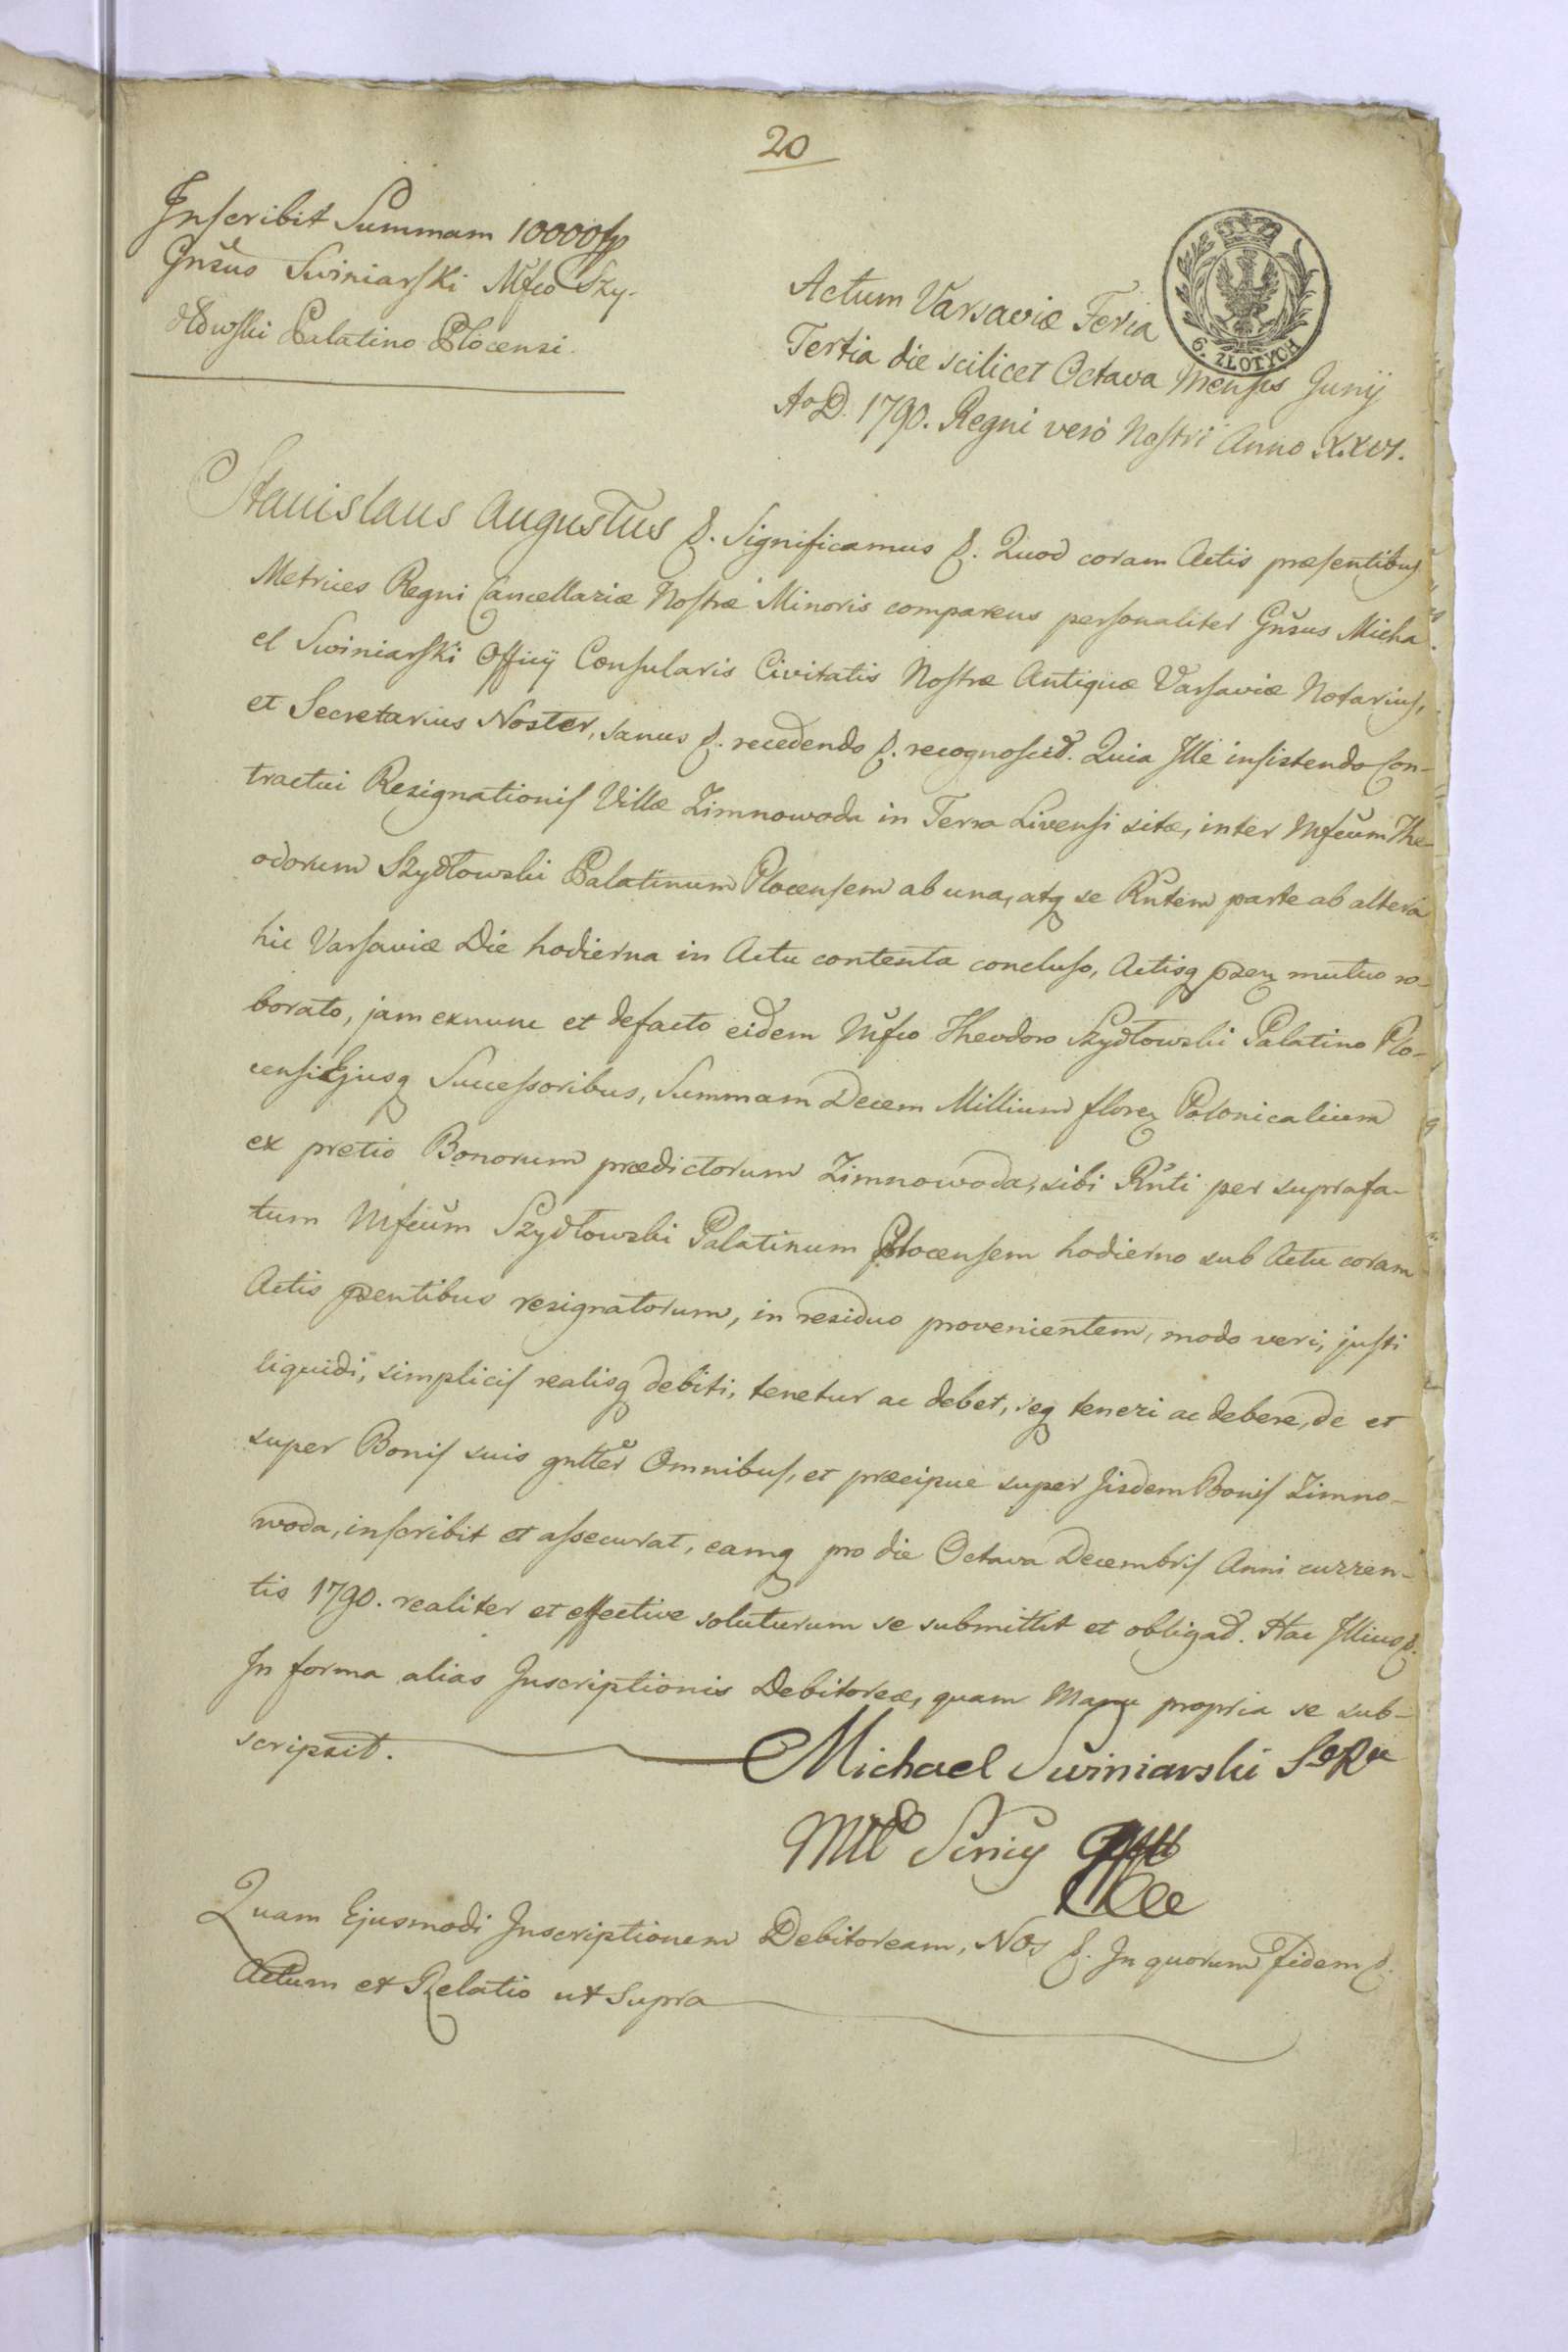 20
Inscribit Summam 10000 fp
Gnsus Swiniarski Mfco Szy-
dłowski Palatino Plocensi.
6. ZŁOTYCH
Actum Varsaviæ Feria
Tertia die scilicet Octava Mensis Junij
Ao D. 1790. Regni verò Nostri Anno XXVI.
Stanislaus Augustus &. Significamus &. Quod coram Actis præsentibus
Metrices Regni Cancellariæ Nostræ Minoris comparens personaliter Gnsus Micha-
el Swiniarski Officij Consularis Civitatis Nostræ Antiquæ Varsaviæ Notarius,
et Secretarius Noster, sanus &. recedendo &. recognovit. Quia Ille insistendo Con-
tractui Resignationis Villæ Zimnowoda in Terra Livensi sitæ, inter Mfcum The-
odorum Szydłowski Palatinum Plocensem ab una, atq se Rntem parte ab altera
hic Varsaviæ Die hodierna in Actu contenta concluso, Actisq pzen mutuo ro-
borato, jam exnunc et defacto eidem Mfco Theodoro Szydłowski Palatino Plo-
censi Ejusq Successoribus, Summam Decem Millium floren Polonicalium
ex pretio Bonorum prædictorum Zimnowoda, sibi Rnti per suprafa-
tum Mfcum Szydłowski Palatinum Plocensem hodierno sub Actu coram
Actis pzentibus resignatorum, in residuo provenientem, modo veri, justi
liquidi, simplicis realisq debiti, tenetur ac debet, seq teneri ac debere, de et
super Bonis suis gntter Omnibus, et præcipue super Iisdem Bonis Zimno-
woda, inscribit et assecurat, eamq pro die Octava Decembris Anni curren-
tis 1790. realiter et effective soluturum se submittit et obligat. Hac Illius &.
In forma alias Inscriptionis Debitoreæ, quam Manu propria se sub-
scripsit.
Michael Swiniarski
Quam Ejusmodi Inscriptionem Debitoream, Nos &. In quorum Fidem &.
Actum et Relatio ut Supra